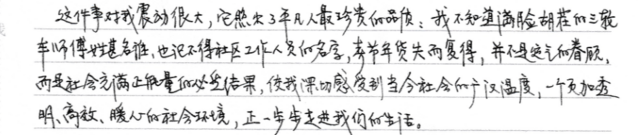 这件事对我震动很大,它照出了平凡人最珍贵的品质:我不知道满脸胡茬的三轮
车师傅姓甚名谁,也记不得社区工作人员的名字,春节年货失而复得,并不是运气的眷顾,
而是社会充满正能量的必然结果,使我深切感受到当今社会的广汉温度,一个更加透
明、高效、暖人心的社会环境,正一步步走进我们的生活。